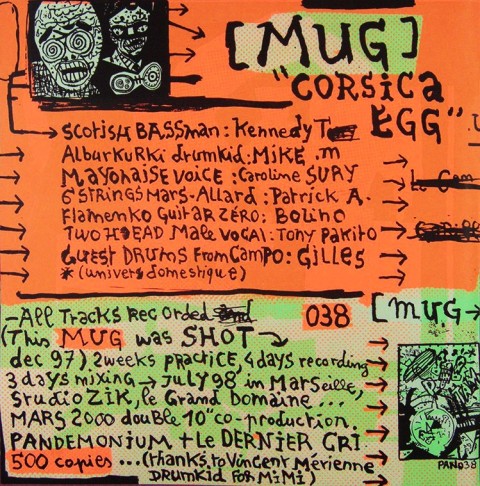 [MUG]
"CORSICA
EGG"
SCOTISH BASSMAN: Kennedy
Alburkurki drumkid: MIKE .m
MAYONAISE VOICE : Caroline SURY
6 STRINGS MARS-ALLARD : PATRICK A.
Flamenko Guitar ZÉRO: Bolino
TWO HEAD Male VOCAL: Tony PAKITO
GUEST DRUMS From CAMPO: GILLES
* (univers domestique)
-All Tracks Recorded and
038
[mug
(This MUG was SHOT
dec 97). 2 weeks PRACTICE, 4 days recording
3 days mixing → July 98' in MARSeille,
studio ZIK, le Grand Domaine ...
MARS 2000 double 10" co-production.
PANDEMONIUM + Le DERNIER CRI
500 copies ... (thanks to Vincent Mérienne
DRUMKID FOR MIMI)
PAN038